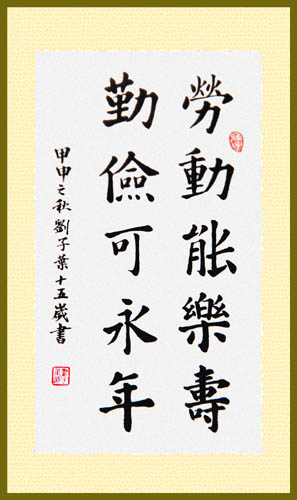 勞動能樂壽
勤儉可永年
甲申之秋劉子葉十五歲書